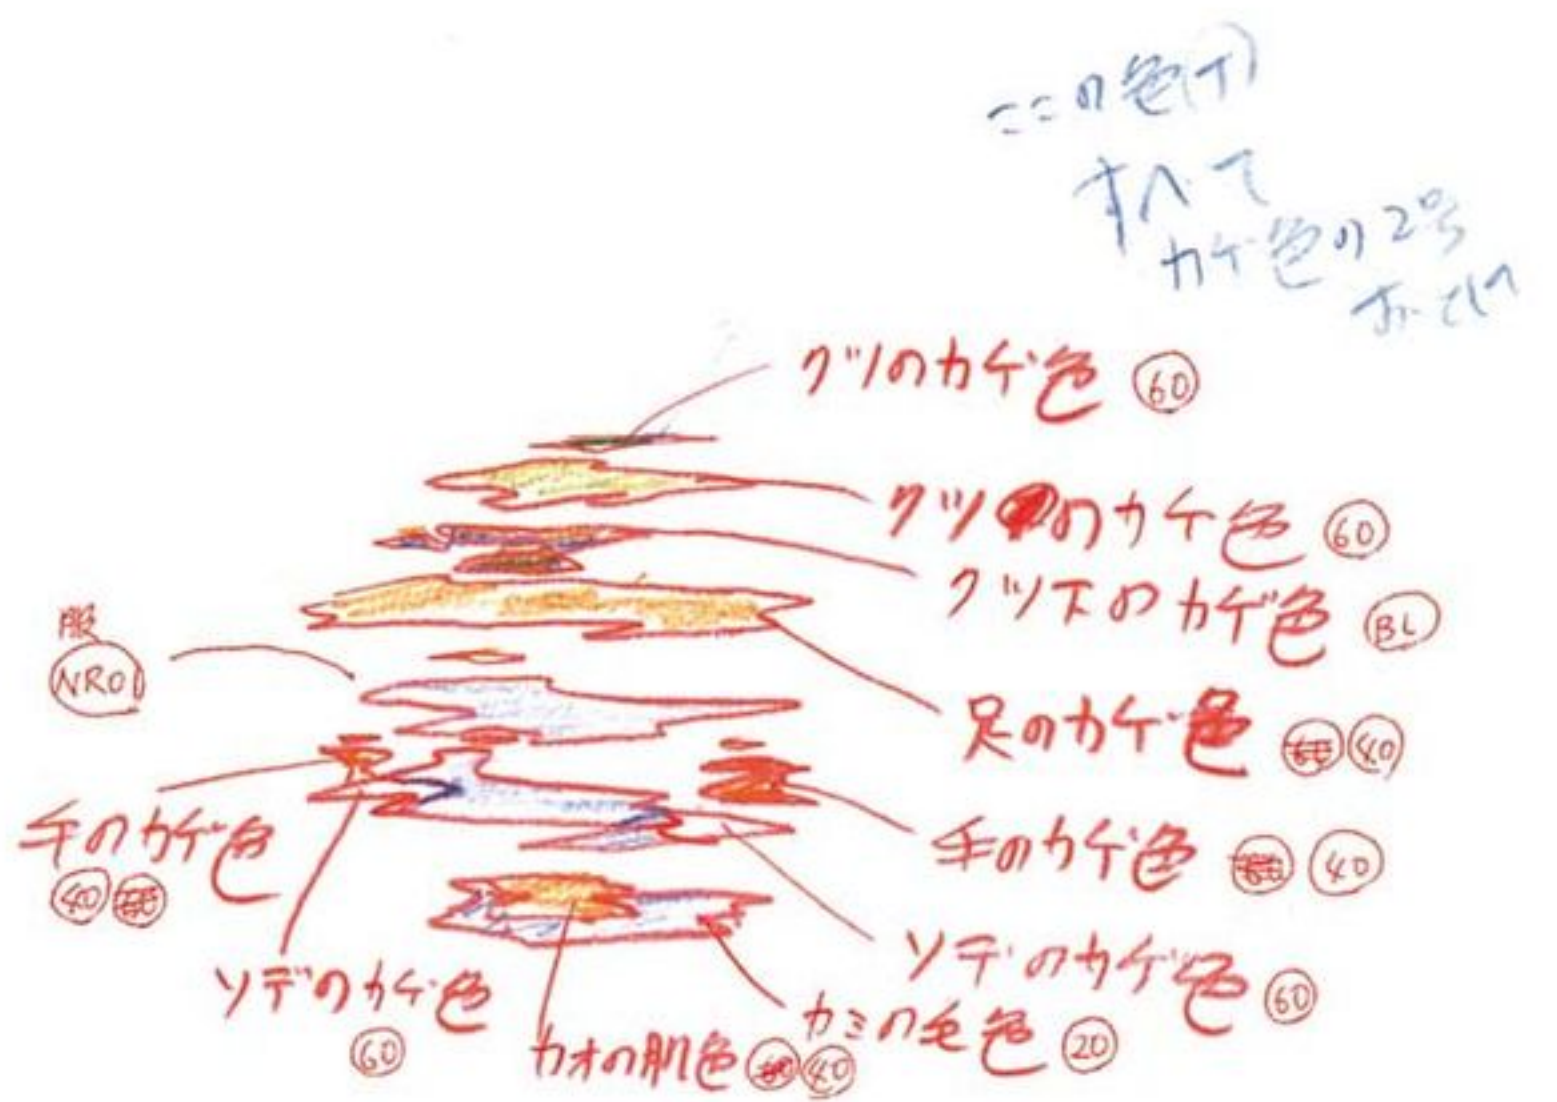 ここの色(T)
すべて
カゲ色の2号
おとし
クツのカゲ色 60
クツのカゲ色 60
クツ下のカゲ色 BL
服
NRO
足のカゲ色 40
手のカゲ色
40
手のカゲ色 40
ソデのカゲ色
60
ソデのカゲ色 60
カミの毛色 20
カオの肌色 40